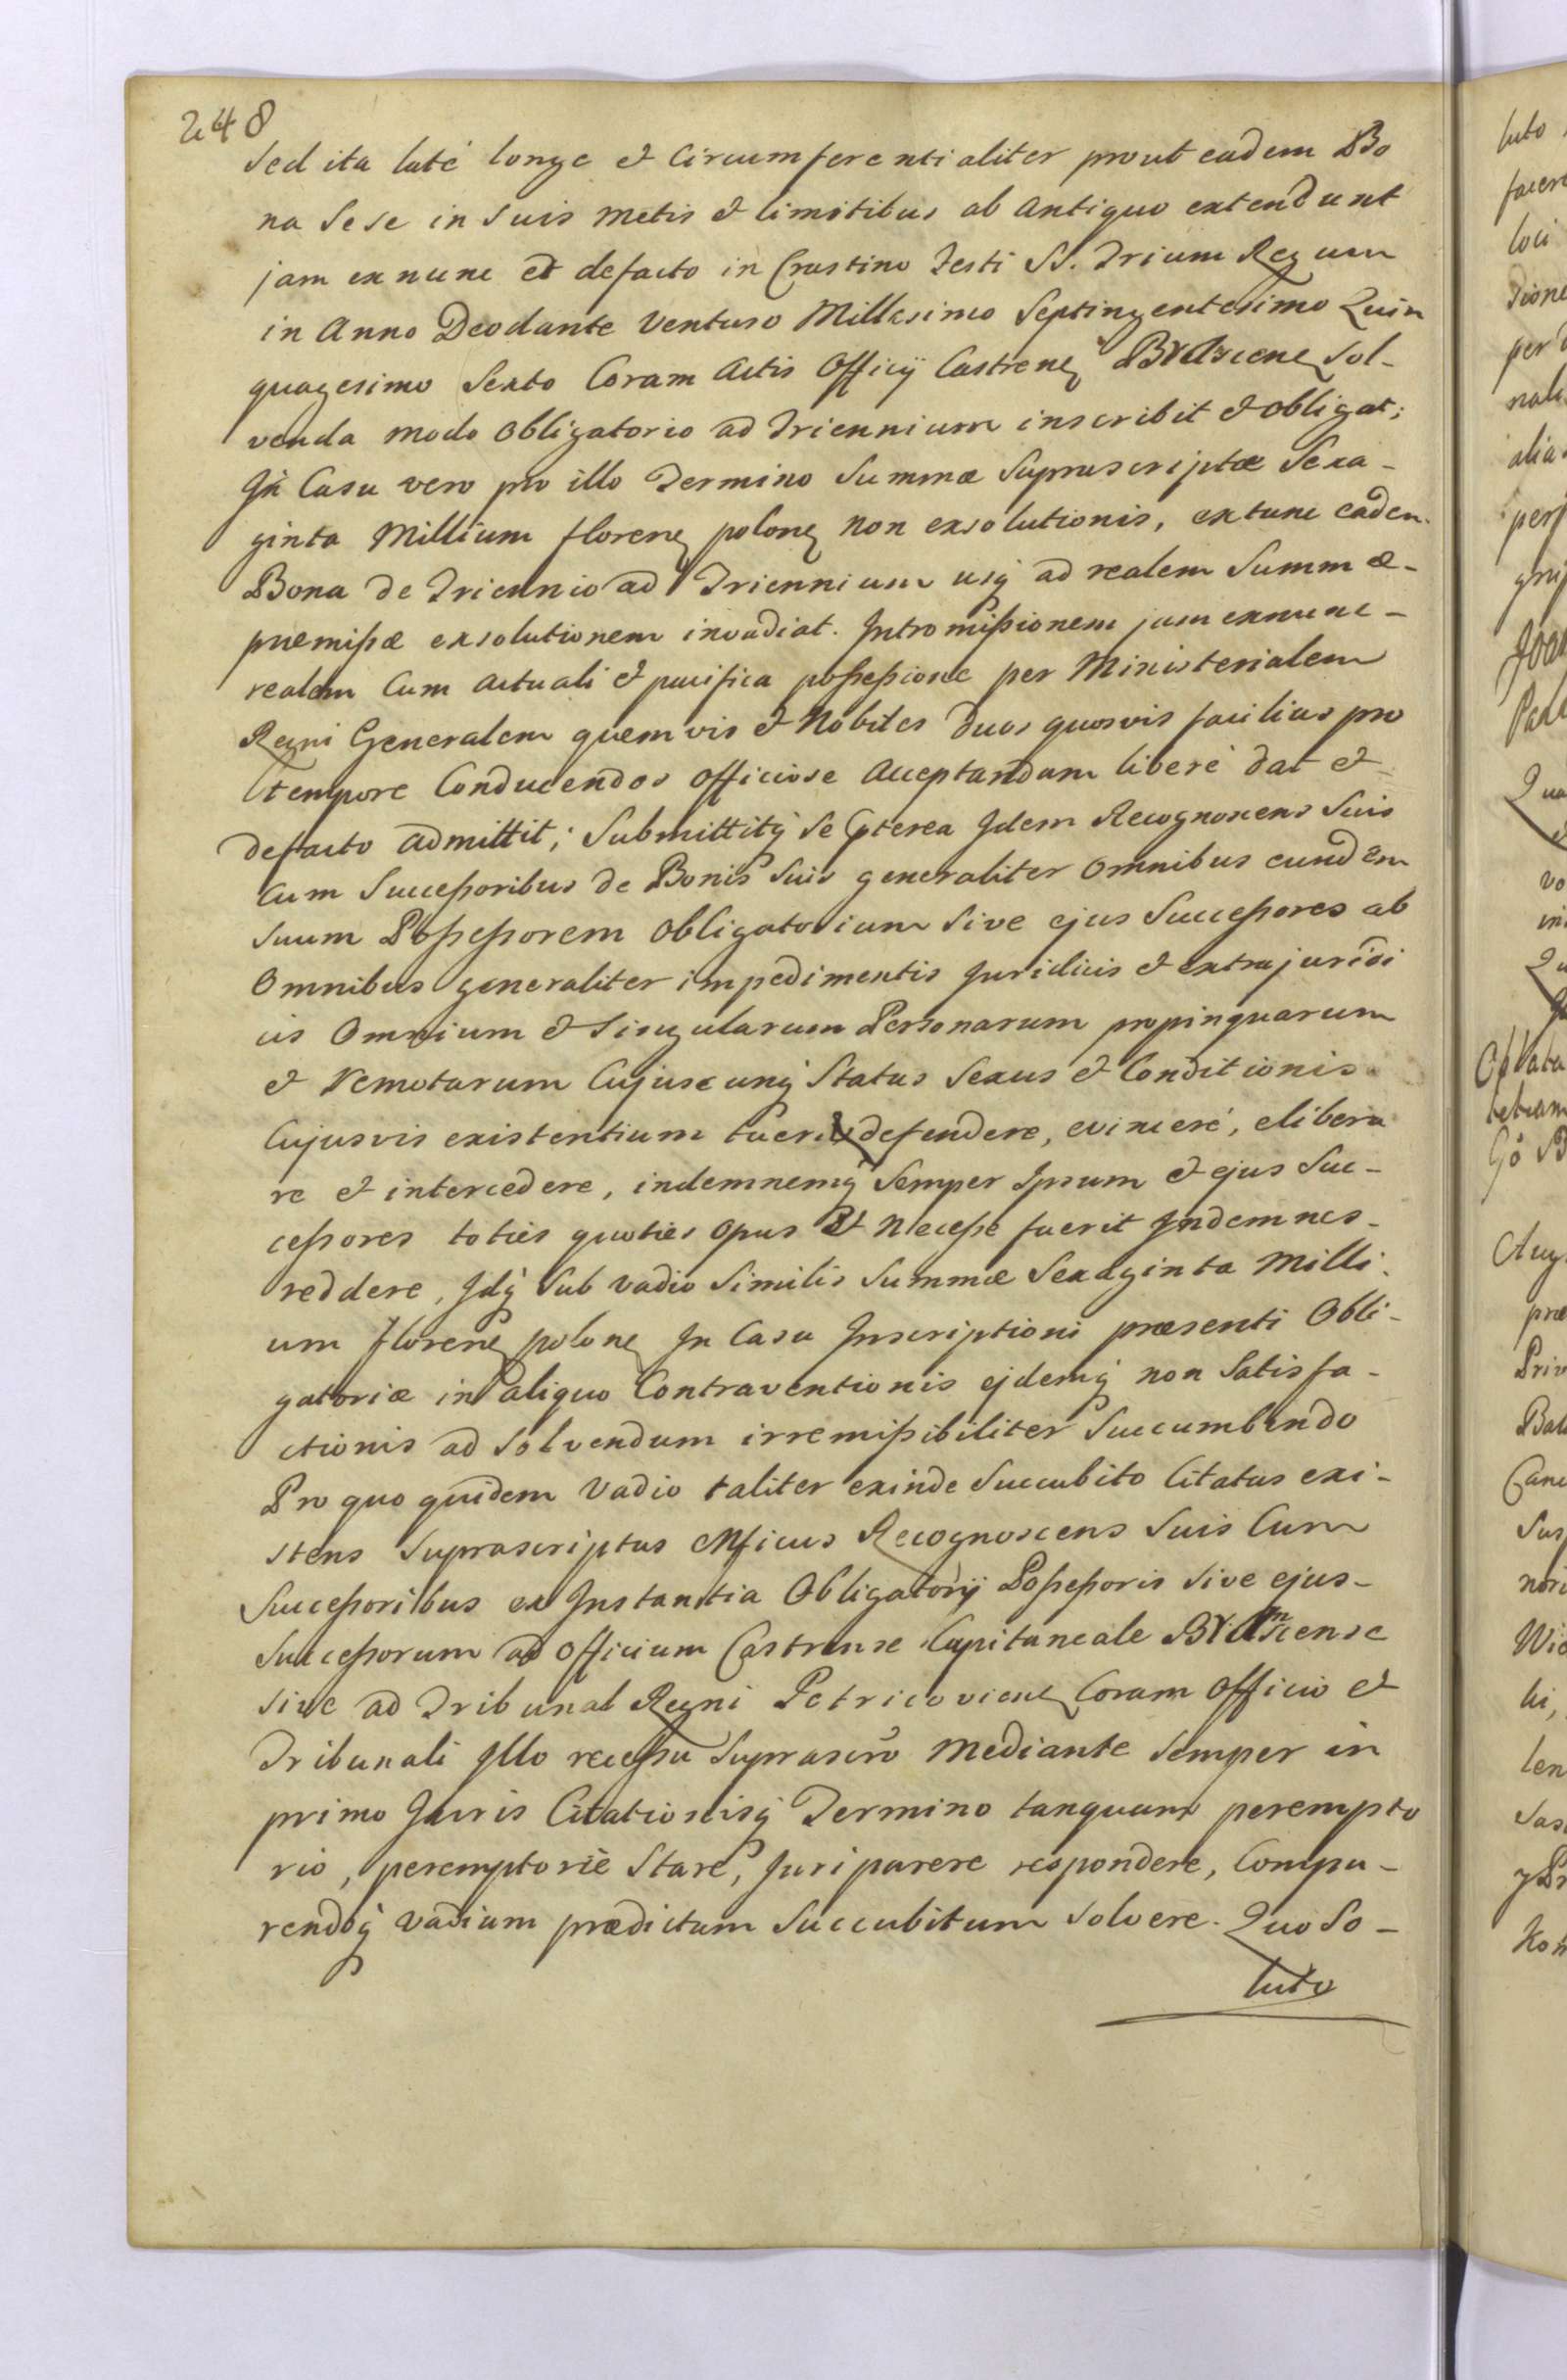 248
Sed ita laté longe et Circumferentialiter prout eadem Bo
na sese in suis metis et limitibus ab antiquo extendunt
jam ex nunc et defacto in Crastino Festi SS. Trium Regum
in Anno Deodante Venturo Millesimo Septingentesimo Quin
quagesimo Sexto Coram Actis Officÿ Castren Brestcen Sol-
venda modo Obligatorio ad Triennium inscribit et obligat;
In Casu vero pro illo Termino Summæ Suprascriptæ Sexa-
ginta Millium floren polon non exsolutionis, extunc eadem
Bona de Triennio ad Triennium usq ad realem Summæ-
præmissæ exsolutionem invadiat. Intromissionem jam exnunc-
realem Cum actuali et pacifica possessione per Ministerialem
Regni Generalem quemvis et Nobiles duos quosvis facilius pro
tempore Conducendos officiose acceptandam liberè dat et
defacto admittit; Submittitq se Ipterea Idem Recognoscens Suis
Cum Successoribus de Bonis Suis generaliter omnibus eundem
Suum Possessorem Obligatorium sive ejus Successores ab
Omnibus generaliter impedimentis Juridicis et extrajuridi
cis Omnium et Singularum Personarum propinquarum
et remotarum Cujuscunq Status Sexus et Conditionis
Cujusvis existentium tueri defendere, evincere, elibera
re et intercedere, indemnemq Semper Ipsum et ejus Suc-
cessores toties quoties opus Et Necesse fuerit Indemnes-
reddere, Idq Sub vadio Similis Summæ Sexaginta Milli
um floren polon In Casu Inscriptioni præsenti Obli-
gatoriæ in aliquo Contraventionis ejdemq non Satisfa-
ctionis ad Solvendum irremissibiliter Succumbendo
Pro quo quidem Vadio taliter exinde Succubito Citatus exi-
stens Suprascriptus Mficus Recognoscens Suis Cum
Successoribus ex Instantia Obligatorÿ Possessoris Sive ejus-
Successorum ad Officium Castrense Capitaneale
sive ad Tribunal Regni Petricovien Coram Officio et
Tribunali Illo recessu Suprascro Mediante Semper in
primo Juris Citationisq Termino tanquam perempto
rio, peremptoriè Stare, Juri parere respondere, Compa-
rendoq vadium prædictum Succubitum Solvere. Quo So-
luto